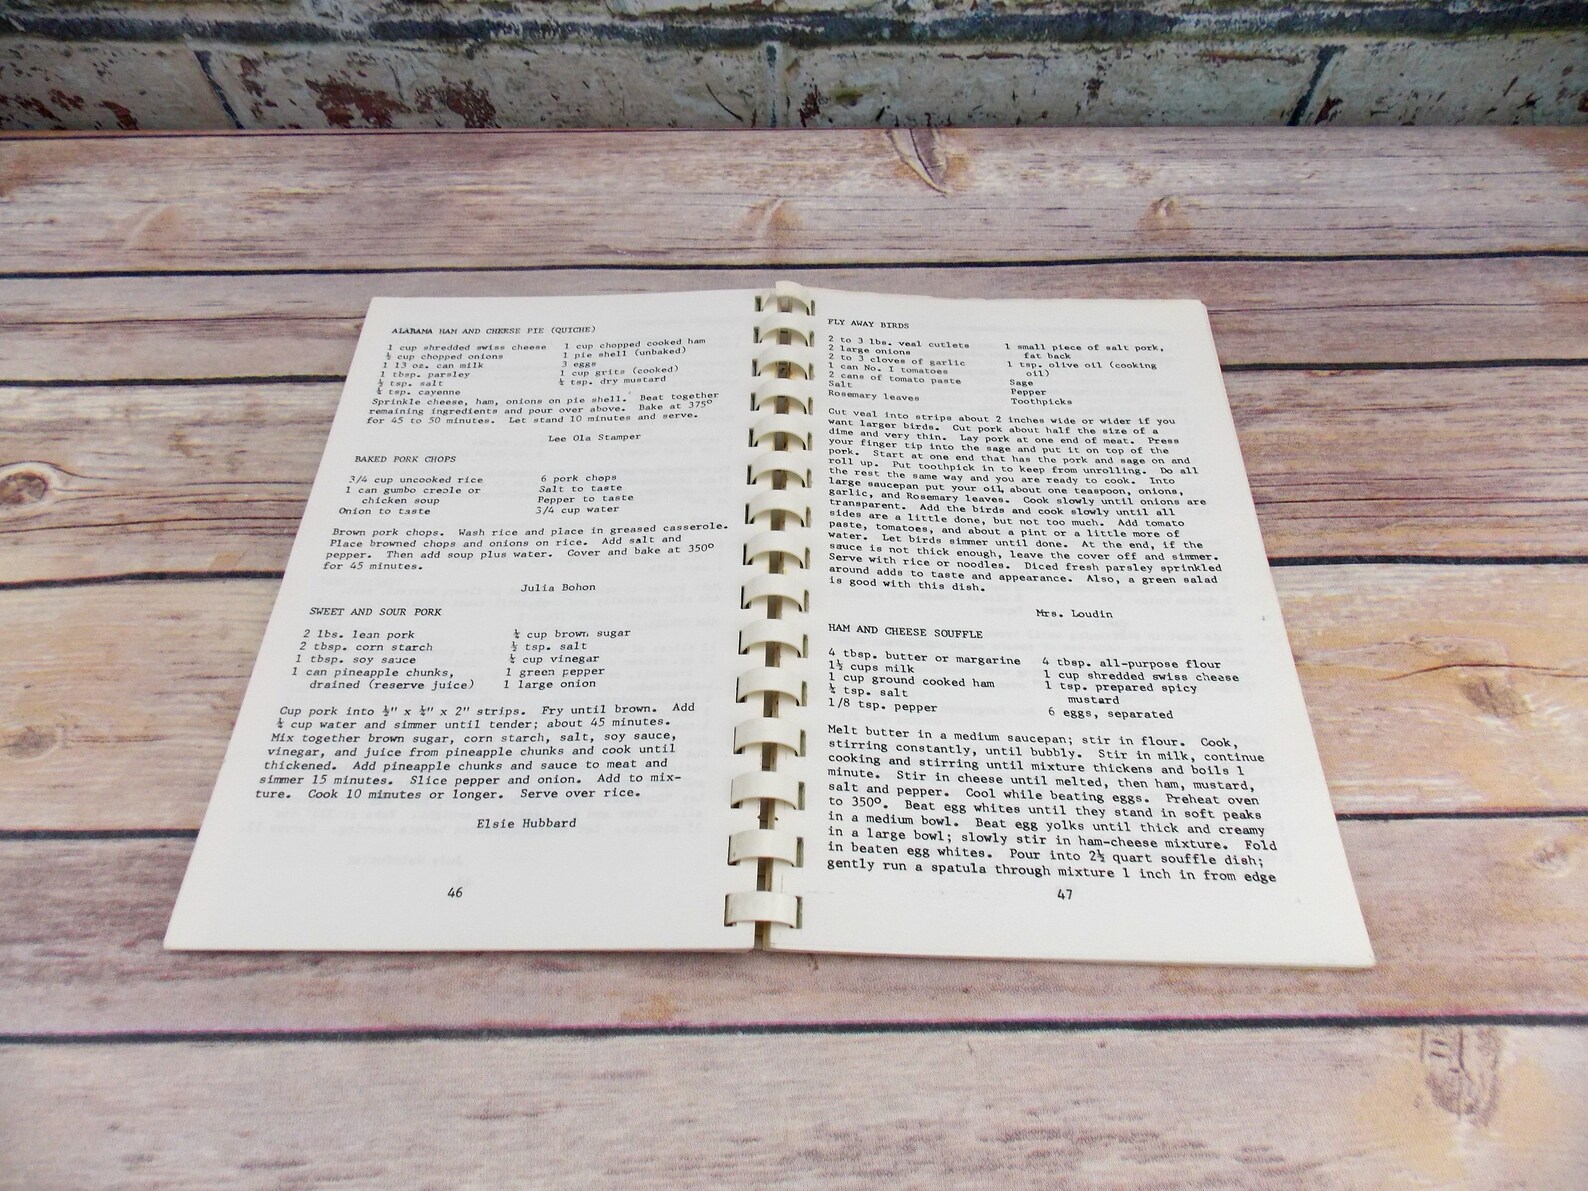 ALABAMA HAM AND CHEESE PIE (QUICHE)
1 cup shredded swiss cheese 1 cup chopped cooked ham
½ cup chopped onions 1 pie shell (unbaked)
1 13 oz. can milk 3 eggs
1 tbsp. parsley 1 cup grits (cooked)
½ tsp. salt ¼ tsp. dry mustard
¼ tsp. cayenne
Sprinkle cheese, ham, onions on pie shell. Beat together
remaining ingredients and pour over above. Bake at 375°
for 45 to 50 minutes. Let stand 10 minutes and serve.
Lee Ola Stamper
BAKED PORK CHOPS
3/4 cup uncooked rice 6 pork chops
1 can gumbo creole or Salt to taste
chicken soup Pepper to taste
Onion to taste 3/4 cup water
Brown pork chops. Wash rice and place in greased casserole.
Place browned chops and onions on rice. Add salt and
pepper. Then add soup plus water. Cover and bake at 350°
for 45 minutes.
Julia Bohon
SWEET AND SOUR PORK
2 lbs. lean pork ¼ cup brown sugar
2 tbsp. corn starch ½ tsp. salt
1 tbsp. soy sauce ¼ cup vinegar
1 can pineapple chunks, 1 green pepper
drained (reserve juice) 1 large onion
Cup pork into ½" x ¼" x 2" strips. Fry until brown. Add
¼ cup water and simmer until tender; about 45 minutes.
Mix together brown sugar, corn starch, salt, soy sauce,
vinegar, and juice from pineapple chunks and cook until
thickened. Add pineapple chunks and sauce to meat and
simmer 15 minutes. Slice pepper and onion. Add to mix-
ture. Cook 10 minutes or longer. Serve over rice.
Elsie Hubbard
46
FLY AWAY BIRDS
2 to 3 lbs. veal cutlets 1 small piece of salt pork,
2 large onions fat back
2 to 3 cloves of garlic 1 tsp. olive oil (cooking
1 can No. I tomatoes oil)
2 cans of tomato paste Sage
Salt Pepper
Rosemary leaves Toothpicks
Cut veal into strips about 2 inches wide or wider if you
want larger birds. Cut pork about half the size of a
dime and very thin. Lay pork at one end of meat. Press
your finger tip into the sage and put it on top of the
pork. Start at one end that has the pork and sage on and
roll up. Put toothpick in to keep from unrolling. Do all
the rest the same way and you are ready to cook. Into
large saucepan put your oil, about one teaspoon, onions,
garlic, and Rosemary leaves. Cook slowly until onions are
transparent. Add the birds and cook slowly until all
sides are a little done, but not too much. Add tomato
paste, tomatoes, and about a pint or a little more of
water. Let birds simmer until done. At the end, if the
sauce is not thick enough, leave the cover off and simmer.
Serve with rice or noodles. Diced fresh parsley sprinkled
around adds to taste and appearance. Also, a green salad
is good with this dish.
Mrs. Loudin
HAM AND CHEESE SOUFFLE
4 tbsp. butter or margarine 4 tbsp. all-purpose flour
1½ cups milk 1 cup shredded swiss cheese
1 cup ground cooked ham 1 tsp. prepared spicy
¼ tsp. salt mustard
1/8 tsp. pepper 6 eggs, separated
Melt butter in a medium saucepan; stir in flour. Cook,
stirring constantly, until bubbly. Stir in milk, continue
cooking and stirring until mixture thickens and boils 1
minute. Stir in cheese until melted, then ham, mustard,
salt and pepper. Cool while beating eggs. Preheat oven
to 350°. Beat egg whites until they stand in soft peaks
in a medium bowl. Beat egg yolks until thick and creamy
in a large bowl; slowly stir in ham-cheese mixture. Fold
in beaten egg whites. Pour into 2½ quart souffle dish;
gently run a spatula through mixture 1 inch in from edge
47